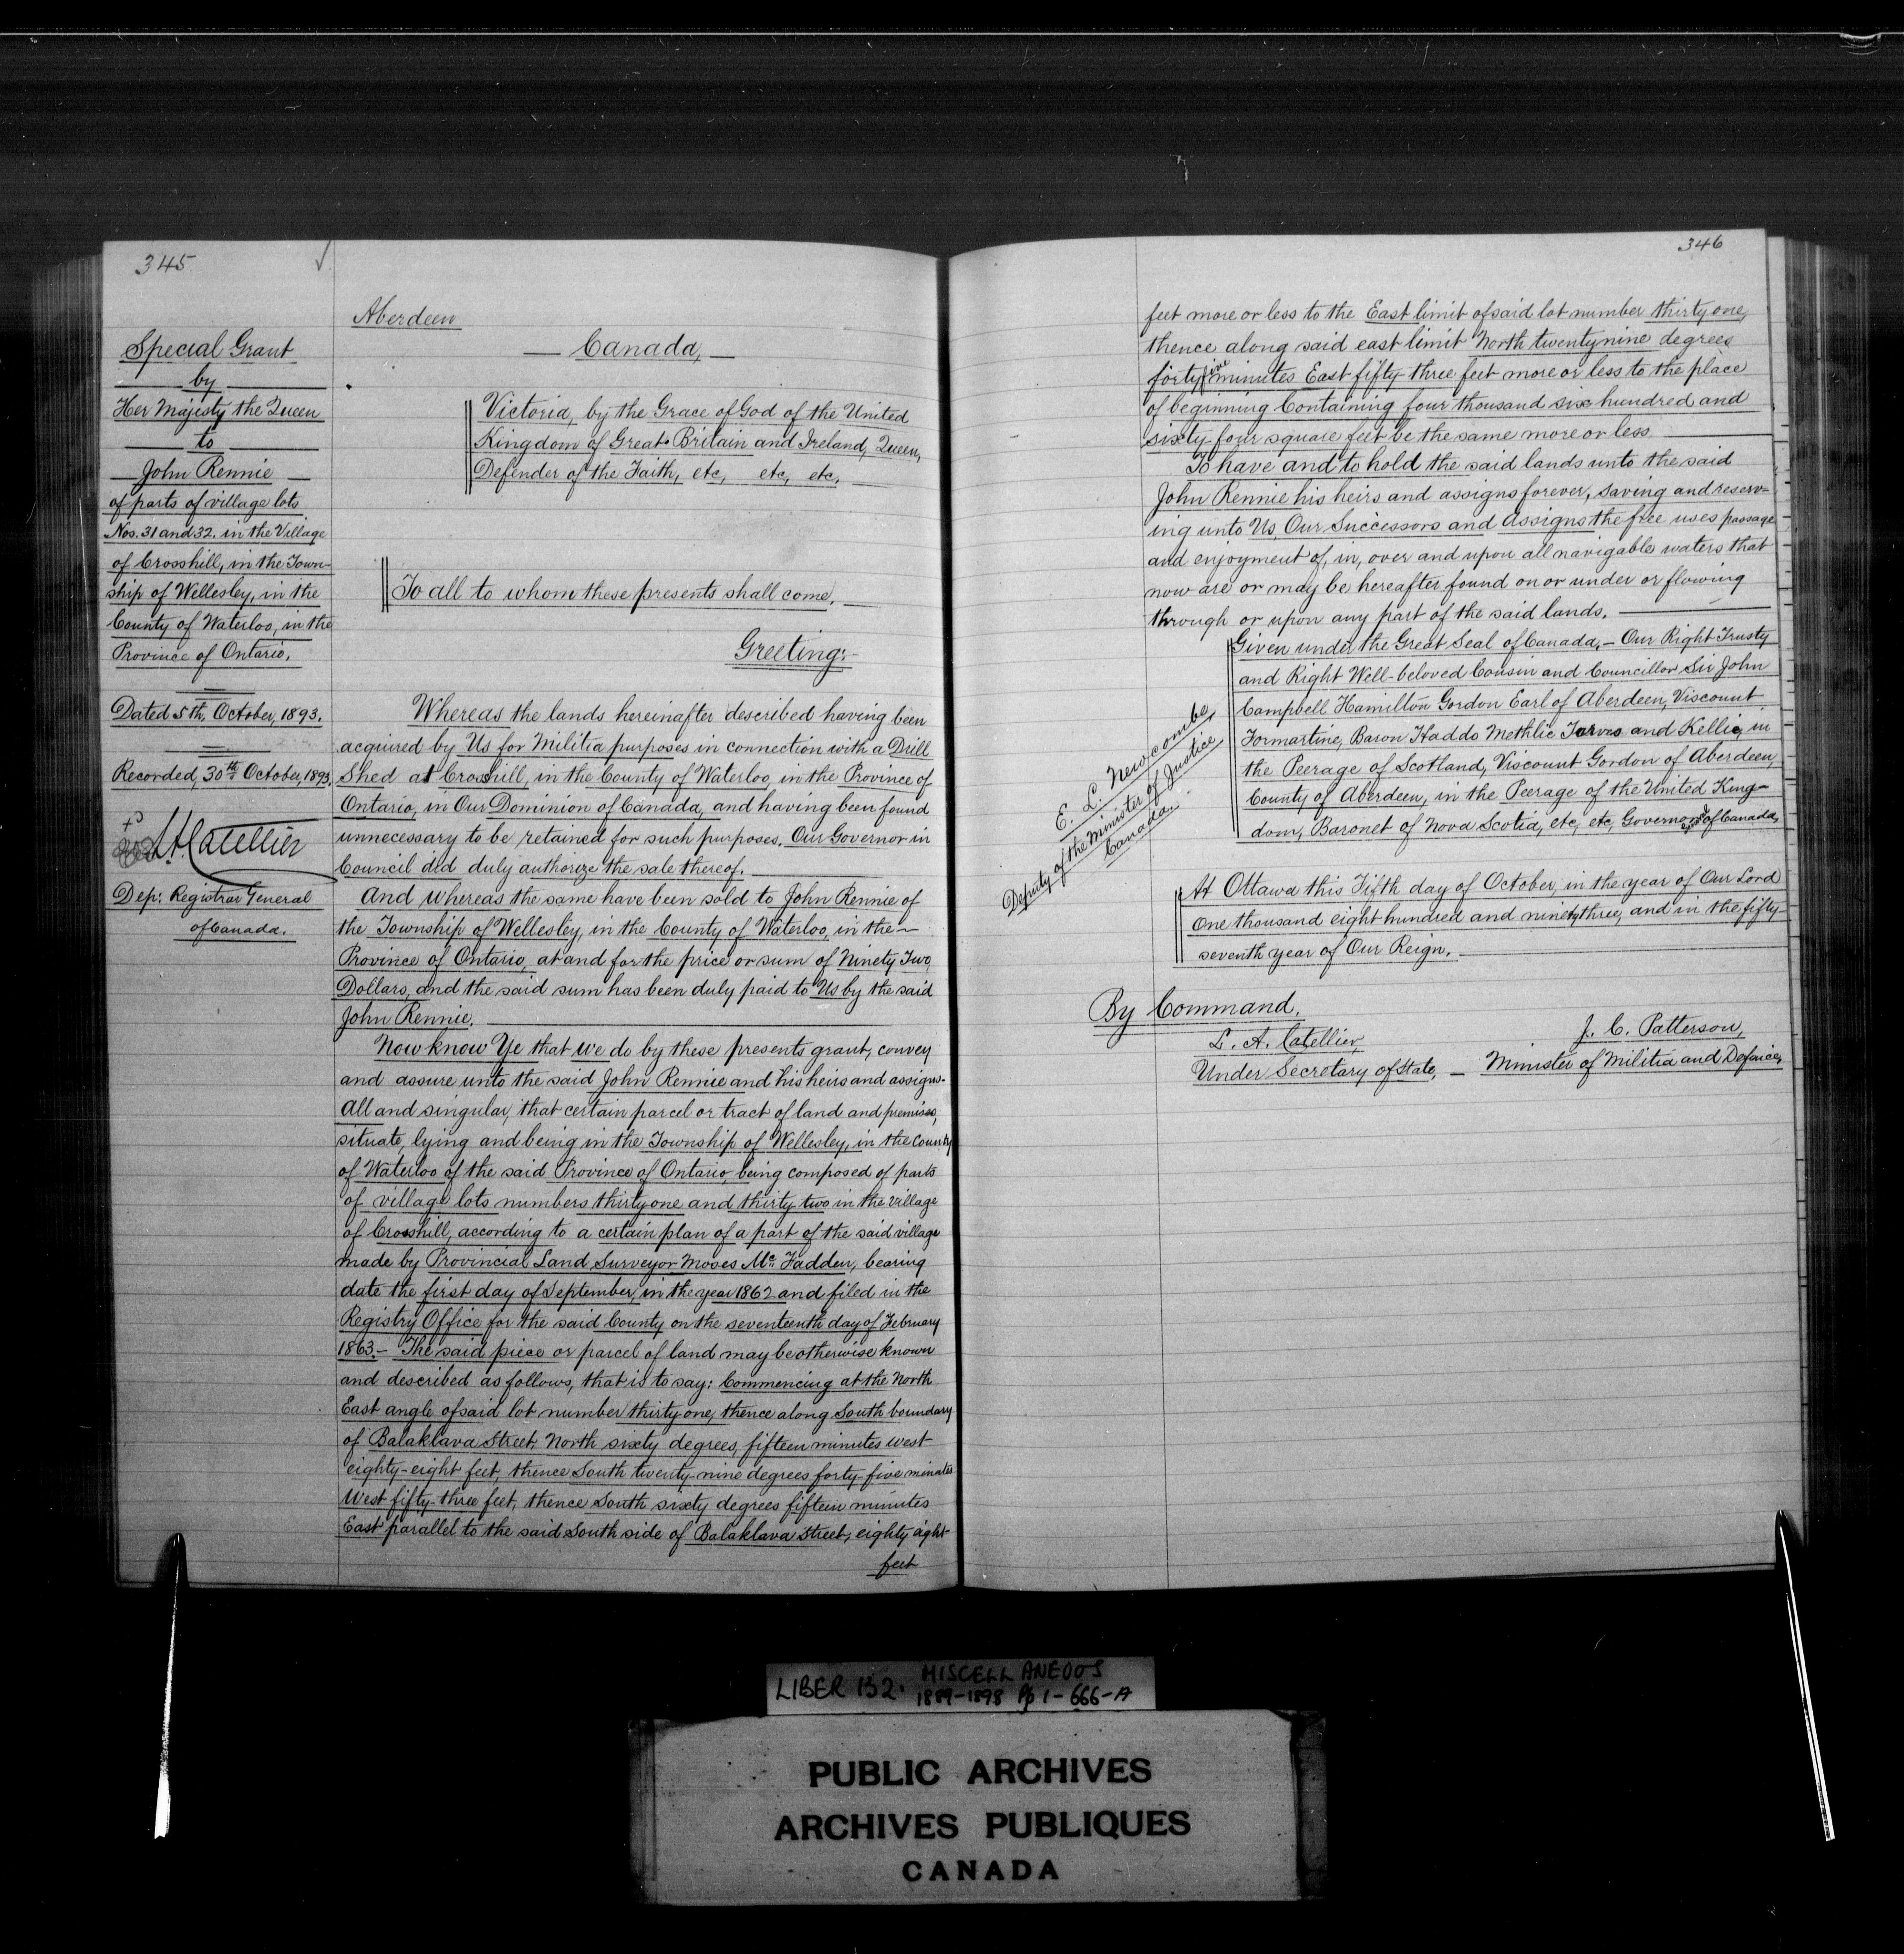 345
Special Grant
by
Her Majesty the Queen
to
John Rennie
of parts of village lots
Nos. 31 and 32. in the Village
of Crosshill, in the Town-
ship of Wellesley, in the
County of Waterloo, in the
Province of Ontario.
Dated 5th. October, 1893.
Recorded, 30th October, 1893.
L A Catellier
Dep: Registrar General
of Canada.
Aberdeen
— Canada, —
Victoria, by the Grace of God of the United
Kingdom of Great Britain and Ireland, Queen,
Defender of the Faith, etc, etc, etc.
To all to whom these presents shall come.
Greeting:-
Whereas the lands hereinafter described having been
acquired by Us for Militia purposes in connection with a Drill
Shed at Crosshill, in the County of Waterloo, in the Province of
Ontario, in Our Dominion of Canada, and having been found
unnecessary to be retained for such purposes. Our Governor in
Council did duly authorize the sale thereof.
And whereas the same have been sold to John Rennie of
the Township of Wellesley, in the County of Waterloo, in the—
Province of Ontario, at and for the price or sum of Ninety Two
Dollars, and the said sum has been duly paid to Us by the said
John Rennie.
Now know Ye that we do by these presents grant, convey
and assure unto the said John Rennie and his heirs and assigns.
all and singular, that certain parcel or tract of land and premises,
situate, lying and being in the Township of Wellesley, in the County
of Waterloo of the said Province of Ontario, being composed of parts
of village lots numbers thirty one and thirty two in the village
of Crosshill, according to a certain plan of a part of the said village
made by Provincial Land Surveyor Moses Mc Fadden, bearing
date the first day of September, in the year 1862 and filed in the
Registry Office for the said County on the seventeenth day of February
1863.— The said piece or parcel of land may be otherwise known
and described as follows, that is to say: Commencing at the North
East angle of said lot number thirty one, thence along South boundary
of Balaklava Street, North sixty degrees, fifteen minutes west
eighty-eight feet, thence South twenty-nine degrees forty-five minutes
West fifty-three feet, thence South sixty degrees fifteen minutes
East parallel to the said South side of Balaklava Street, eighty eight
feet
346
feet more or less to the East limit of said lot number thirty one,
thence along said east limit North twenty nine degrees
forty five minutes East fifty-three feet more or less to the place
of beginning Containing four thousand six hundred and
sixty-four square feet be the same more or less
To have and to hold the said lands unto the said
John Rennie his heirs and assigns forever, saving and reserv-
ing unto Us, Our Successors and Assigns the free uses passage
and enjoyment of, in, over and upon all navigable waters that
now are or may be hereafter found on or under or flowing
through or upon any part of the said lands.
Given under the Great Seal of Canada,— Our Right Trusty
and Right Well-beloved Cousin and Councillor Sir John
Campbell Hamilton Gordon Earl of Aberdeen, Viscount
Formartine, Baron Haddo Methlic Tarves and Kellie, in
the Peerage of Scotland, Viscount Gordon of Aberdeen,
County of Aberdeen, in the Peerage of the United King-
dom, Baronet of Nova Scotia, etc, etc, Governor General of Canada,
E. L. Newcombe,
Deputy of the Minister of Justice
Canada.
At Ottawa this Fifth day of October, in the year of Our Lord
One thousand eight hundred and ninety three, and in the fifty-
seventh year of Our Reign.
By Command.
L. A. Catellier,
Under Secretary of State, —
J. C. Patterson,
Minister of Militia and Defence,
LIBER 132. MISCELLANEOUS
1889-1898 Pp 1-666-A
PUBLIC ARCHIVES
ARCHIVES PUBLIQUES
CANADA